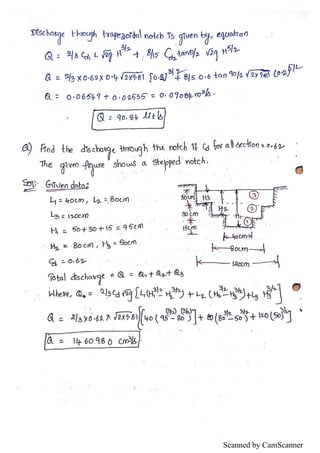 Discharge through trapezoidal notch is given by, equation
Q = 2/3 Cd1 L √2g H^3/2 + 8/15 Cd2 tanθ/2 √2g H^5/2
Q = 2/3 x 0.62 x 0.4 √2x9.81 [0.2]^3/2 + 8/15 0.6 tan 90/2 √2x9.81 (0.2)^5/2
Q = 0.06549 + 0.02535 = 0.09084 m³/s.
Q = 90.84 lit/s
Q) Find the discharge through the notch if Cd for all section = 0.62
The given figure shows a stepped notch.
Sol: Given data:
L1 = 40cm, L2 = 80cm
L3 = 120cm
H1 = 50+30+15 = 95cm
H2 = 80cm, H3 = 50cm
Cd = 0.62
50cm H3 ③
30cm H2 ②
15cm H1 ①
40cm
80cm
120cm
Total discharge = Q = Q1 + Q2 + Q3
Where, Q = 2/3 Cd √2g [L1(H1^3/2 - H2^3/2) + L2 (H2^3/2 - H3^3/2) + L3 H3^3/2]
Q = 2/3 x 0.62 x √2x981 [40 (95^(3/2) - 80^(3/2)) + 80 (80^3/2 - 50^3/2) + 120 (50)^3/2]
Q = 1460980 cm³/s.
Scanned by CamScanner